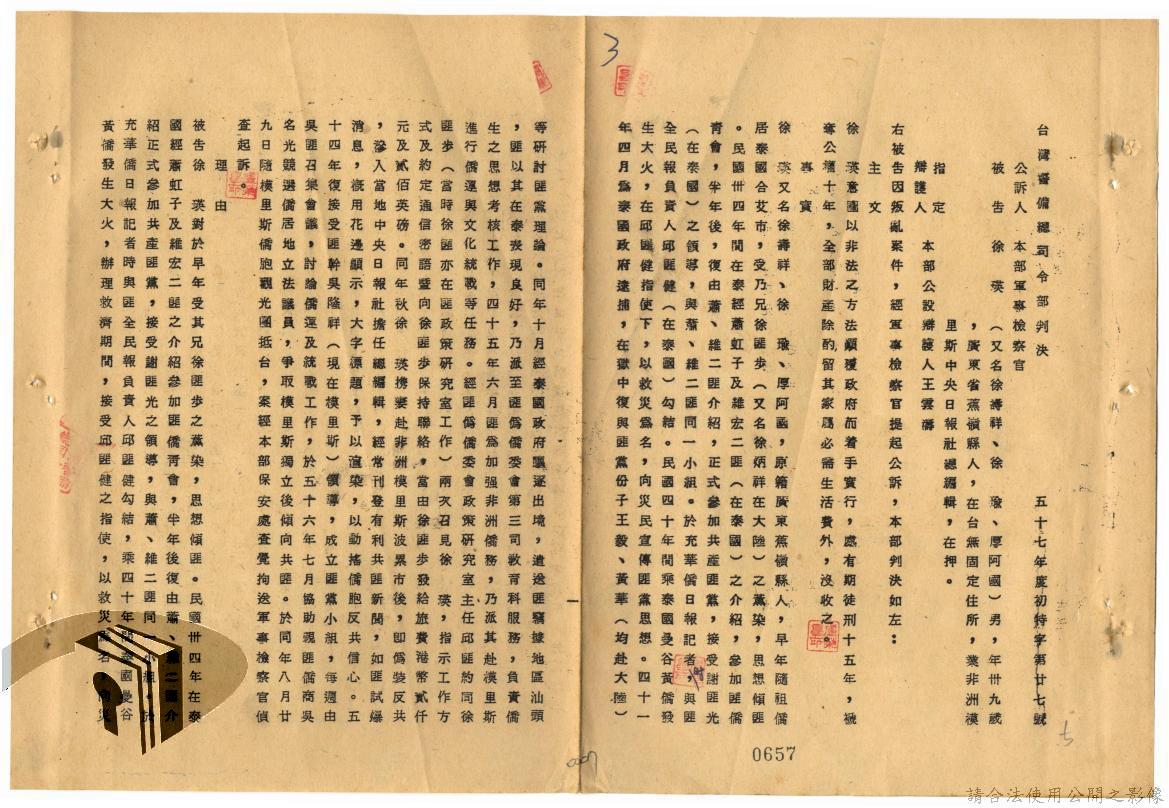 台灣警備總司令部判決　　五十七年度初特字第廿七號
公訴人　本部軍事檢察官
被　告　徐　瑛　（又名徐壽祥、徐　璇、厚阿國）男，年卅九歲
，廣東省蕉嶺縣人，在台無固定住所，業非洲模
里斯中央日報社總編輯，在押。
指　定
辯護人　本部公設辯護人王雲濤
右被告因叛亂案件，經軍事檢察官提起公訴，本部判決如左：
主　文
徐　瑛意圖以非法之方法顛覆政府而着手實行，處有期徒刑十五年，褫
奪公權十年，全部財產除酌留其家屬必需生活費外，沒收之。
事　實
徐　瑛又名徐壽祥、徐　璇、厚阿國，原籍廣東蕉嶺縣人，早年隨祖僑
居泰國合艾市，受乃兄徐匪步（又名徐炳祥在大陸）之薰染，思想傾匪
。民國卅四年間在泰經蕭虹子及維宏二匪（在泰國）之介紹，參加匪僑
青會，半年後，復由蕭、維二匪介紹，正式參加共產匪黨，接受謝匪光
（在泰國）之領導，與蕭、維二匪同一小組。於充華僑日報記者，與匪
全民報負責人邱匪健（在泰國）勾結。民國四十年間乘泰國曼谷黃僑發
生大火，在邱匪健指使下，以救災為名，向災民宣傳匪黨思想。四十一
年四月為泰國政府逮捕，在獄中復與匪黨份子王毅、黃華（均赴大陸）
等研討匪黨理論。同年十月經泰國政府驅逐出境，遣送匪竊據地區汕頭
，匪以其在泰表現良好，乃派至匪偽僑委會第三司教育科服務，負責僑
生之思想考核工作，四十五年六月匪為加强非洲僑務，乃派其赴模里斯
進行僑運與文化統戰等任務。經匪偽僑委會政策研究室主任邱匪約同徐
匪步（當時徐匪亦在匪政策研究室工作）兩次召見徐　瑛，指示工作方
式及約定通信密語暨向徐匪步保持聯絡，當由徐匪步發給旅費港幣貳仟
元及貳佰英磅。同年秋徐　瑛携妻赴非洲模里斯波累市後，即偽裝反共
，滲入當地中央日報社擔任總編輯，經常刊登有利共匪新聞，如匪試爆
消息，慨用花邊顯示，大字標題，予以渲染，以動搖僑胞反共信心。五
十四年復接受匪幹吳隆祥（現在模里斯）領導，成立匪黨小組，每週由
吳匪召集會議，討論僑運及統戰工作，於五十六年七月協助親匪僑商吳
名光競選僑居地立法議員，爭取模里斯獨立後傾向共匪。於同年八月廿
九日隨模里斯僑胞觀光團抵台，案經本部保安處查覺拘送軍事檢察官偵
查起訴。
理　由
被告徐　瑛對於早年受其兄徐匪步之薰染，思想傾匪。民國卅四年在泰
國經蕭虹子及維宏二匪之介紹參加匪僑青會，半年後復由蕭、維二匪介
紹正式參加共產匪黨，接受謝匪光之領導，與蕭、維二匪同一小組。於
充華僑日報記者時與匪全民報負責人邱匪健勾結，乘四十年間泰國曼谷
黃僑發生大火，辦理救濟期間，接受邱匪健之指使，以救災為名，向災
一
3
0657
請合法使用公開之影像